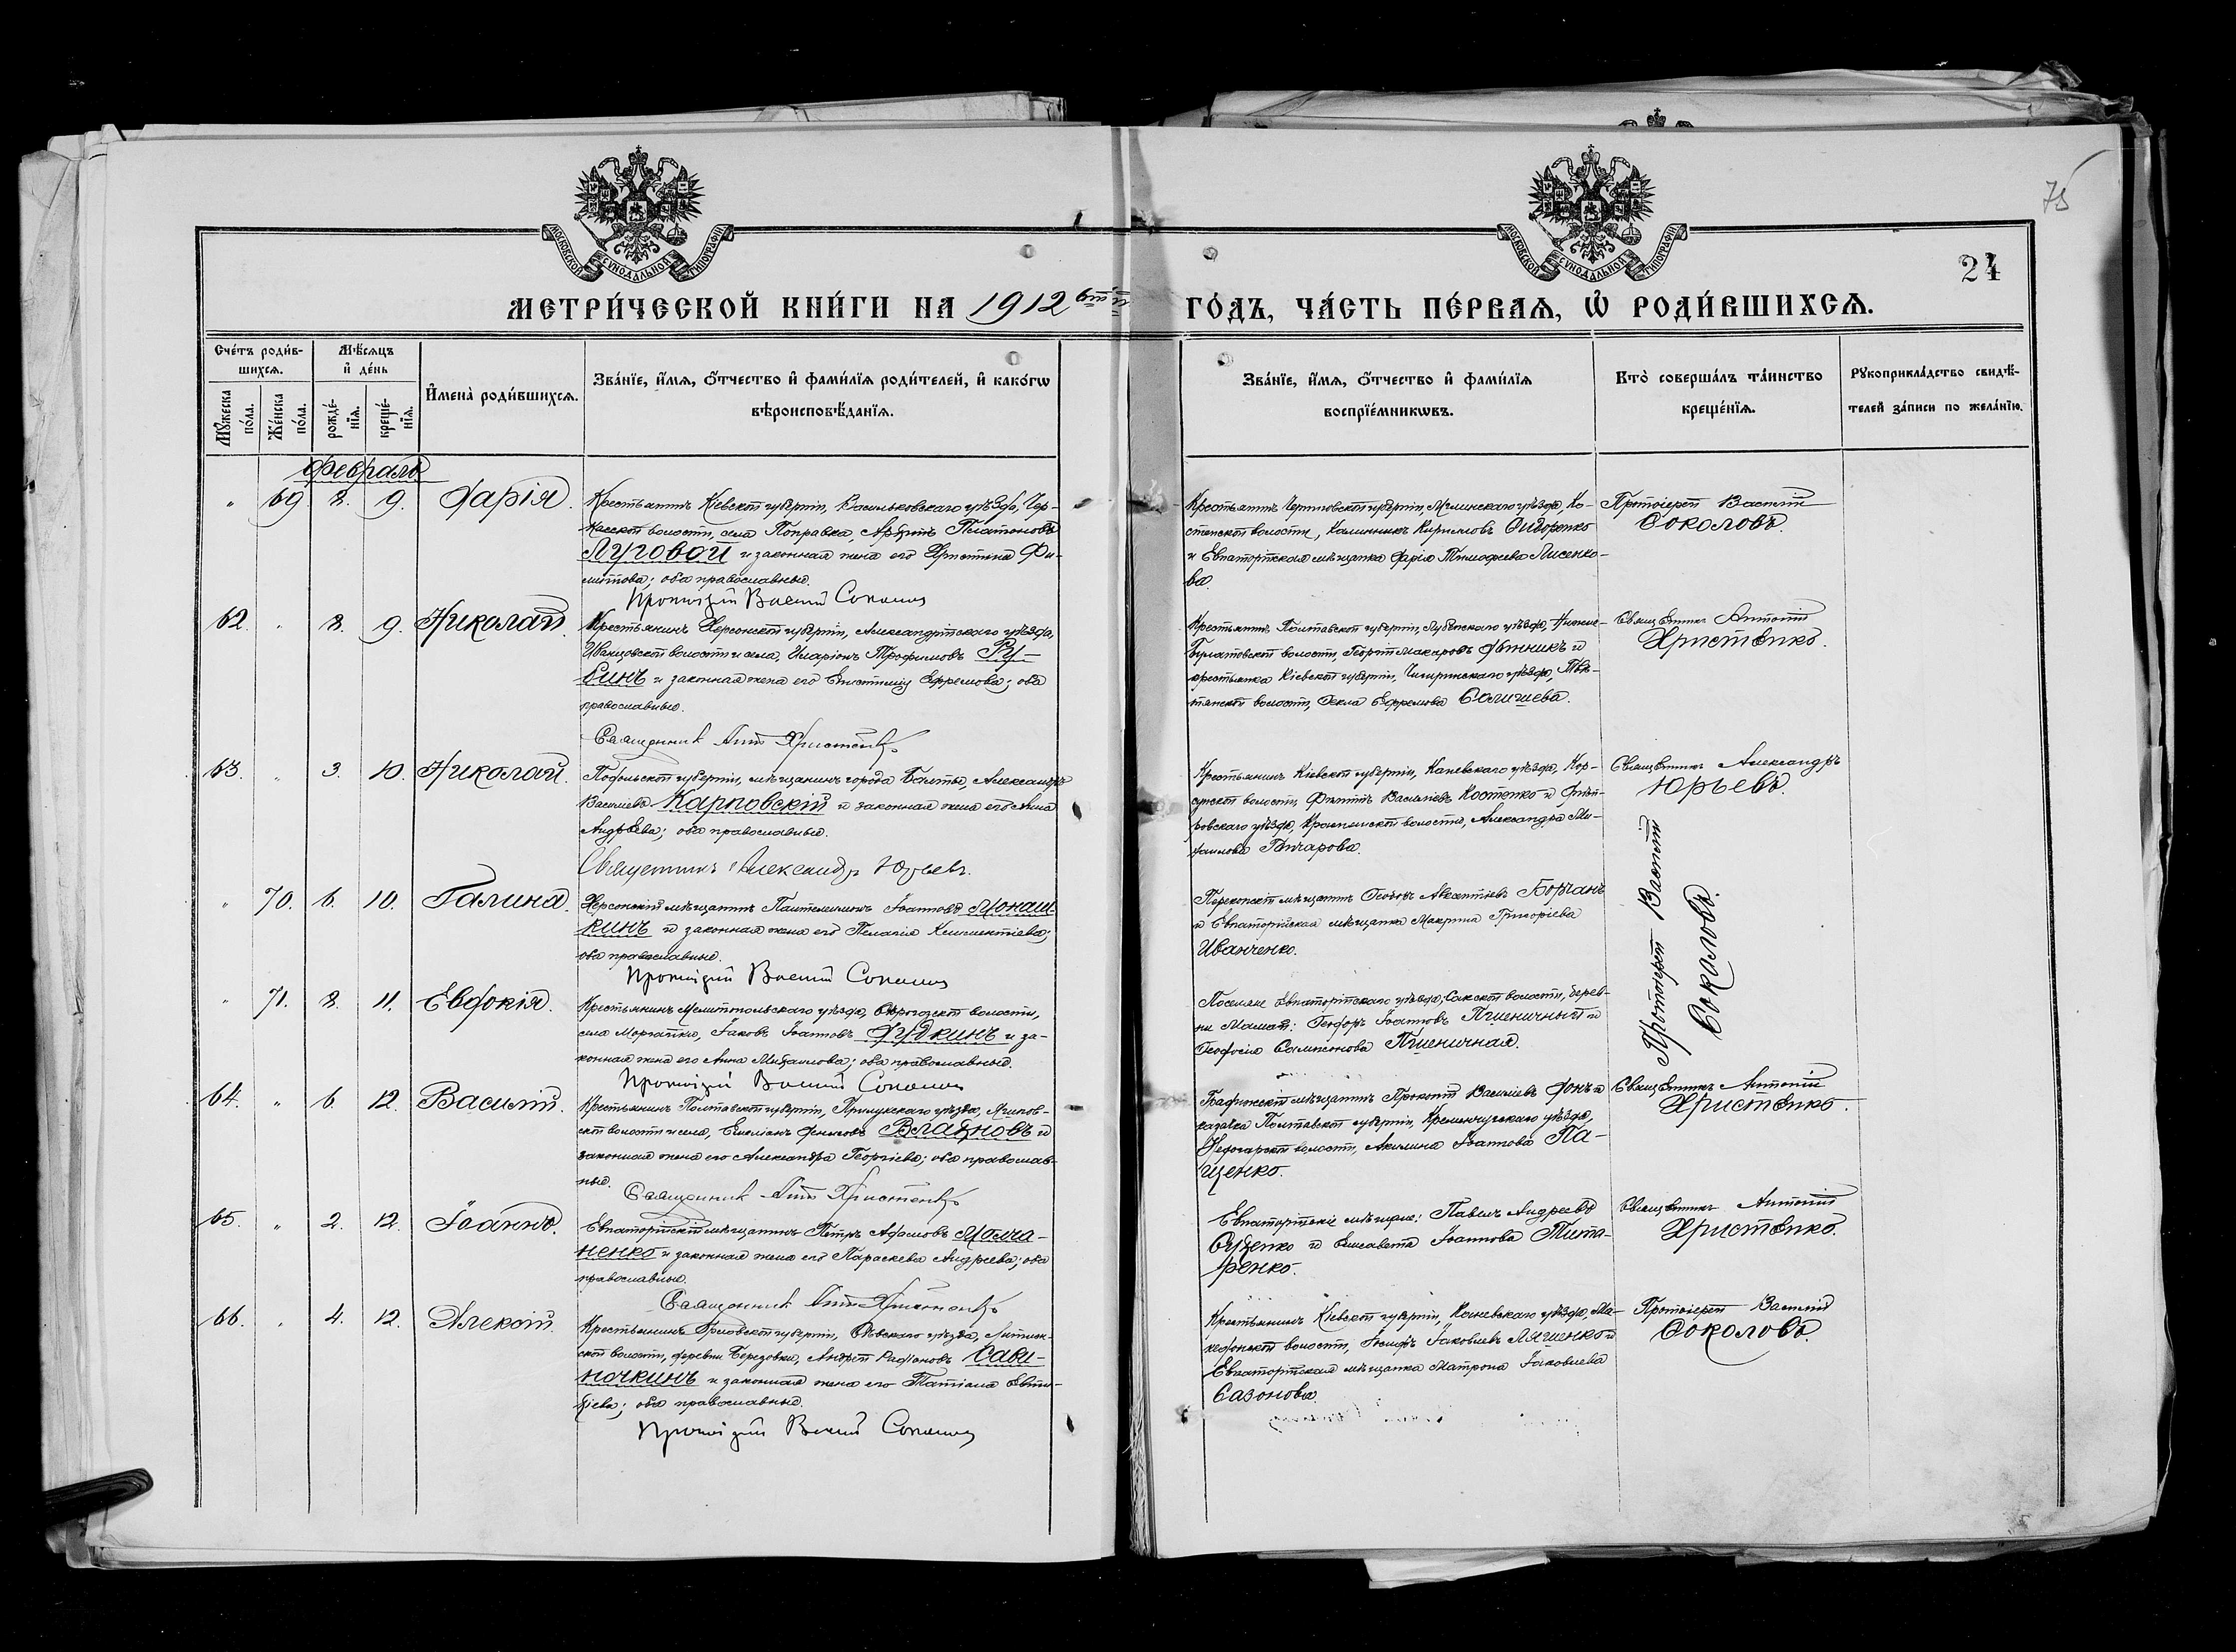 75
24
МОСКОВСКОЙ СѴНОДАЛЬНОЙ ТИПОГРАФІИ
МОСКОВСКОЙ СѴНОДАЛЬНОЙ ТИПОГРАФІИ
МЕТРИ́ЧЕСКОЙ КНИ́ГИ НА 1912 ГО́ДЪ, ЧА́СТЬ ПЕ́РВАѦ, Ѡ҆ РОДИ́ВШИХСѦ.
Счє́тъ роди́в-
шихсѧ.
Мꙋ́жеска по́ла.
Же́нска по́ла.
Мѣ́сѧцъ
и҆ де́нь
рожде́-
нїѧ.
креще́-
нїѧ.
И҆мена̀ роди́вшихсѧ.
Зва́нїе, и҆́мѧ, ѻ҆́тчество и҆ фами́лїѧ роди́телей, и҆ како́гѡ
вѣроисповѣ́данїѧ.
Зва́нїе, и҆́мѧ, ѻ҆́тчество и҆ фами́лїѧ
воспрїе́мникѡвъ.
Кто̀ соверша́лъ та́инство
креще́нїѧ.
Рꙋкоприкла́дство свидѣ́-
телей за́писи по жела́нїю.
Февраль
" 69 8. 9. Дарія.
Крестьянинъ Кіевской губерніи, Васильковскаго уѣзда, Чер-
насской волости, села Поправка, Платоновъ
Луговой и законная жена его Христина Фи-
липпова; оба православные.
Протоіерей Василій Соколовъ
Крестьянинъ Черниговской губерніи, Мглинскаго уѣзда, Ко-
стенской волости, Калинникъ Кирилловъ Сидоренко
и Евпаторійская мѣщанка Дарія Тимофеева Лисенко-
ва.
Протоіерей Василій
Соколовъ.
62. " 8. 9. Николай.
Крестьянинъ Херсонской губерніи, Александрійскаго уѣзда,
Ивановской волости и села, Иларіонъ Трофимовъ Ру-
бинъ и законная жена его Ефремова; оба
православные.
Священник Ант Христенко
Крестьянинъ Полтавской губерніи, Лубенскаго уѣзда, Нижне-
Булатовской волости, Георгій Макаровъ и
крестьянка Кіевской губерніи, Чигиринскаго уѣзда,
волости, Фекла Ефремова Салищева.
Священникъ Антоній
Христенко.
63. " 3. 10. Николай.
Подольской губерніи, мѣщанинъ города Балты, Александръ
Василіевъ Карповскій и законная жена его Анна
Андреева; оба православные.
Священникъ Александръ Юрьевъ.
Крестьянинъ Кіевской губерніи, Каневскаго уѣзда, Кор-
сунской волости, Филиппъ Василіевъ Костенко и Днѣп-
ровскаго уѣзда, волости, Александра Ми-
хаилова Гончарова.
Священникъ Александръ
Юрьевъ.
" 70. 6. 10. Галина.
Херсонскій мѣщанинъ Пантелеимонъ Іоанновъ Монаш-
кинъ и законная жена его Пелагія Климентіева;
оба православные.
Протоіерей Василій Соколовъ
Перекопскій мѣщанинъ Авксентіевъ Борганъ
и Евпаторійская мѣщанка Макрина Григоріева
Иванченко.
Протоіерей Василій
Соколовъ.
" 71. 8. 11. Евдокія.
Крестьянинъ Мелитопольскаго уѣзда, волости,
села Іаковъ Іоанновъ Дудкинъ и за-
конная жена его Анна Михаилова; оба православные.
Протоіерей Василій Соколовъ
Поселяне Евпаторійскаго уѣзда, Сакской волости, дерев-
ни Мамай: Феодоръ Іоанновъ Пшеничный и
Феодосія Сампсонова Пшеничная.
64. " 6. 12. Василій.
Крестьянинъ Полтавской губерніи, Прилукскаго уѣзда,
ской волости и села, Емеліанъ Владновъ и
законная жена его Александра Георгіева; оба православ-
ные.
Священник Ант Христенко
мѣщанинъ Прокопій Василіевъ и
казачка Полтавской губерніи, Кременчугскаго уѣзда,
волости, Акилина Іоаннова Па-
щенко.
Священникъ Антоній
Христенко.
65. " 2. 12. Іоаннъ.
Евпаторійскій мѣщанинъ Петръ Адамовъ Молча-
ненко и законная жена его Параскева Андреева; оба
православные.
Священник Ант Христенко
Евпаторійскіе мѣщане: Павелъ Андреевъ
Суденко и Елисавета Іоаннова Тита-
ренко.
Священникъ Антоній
Христенко.
66. " 4. 12. Алексій.
Крестьянинъ Орловской губерніи, Сѣвскаго уѣзда,
ской волости, деревни Березовки, Андрей Родіоновъ Сави-
ночкинъ и законная жена его Татіана Евти-
хіева; оба православные.
Протоіерей Василій Соколовъ
Крестьянинъ Кіевской губерніи, Каневскаго уѣзда, Ма-
кедонской волости, Іосифъ Іаковлевъ Ляшенко и
Евпаторійская мѣщанка Матрона Іаковлева
Сазонова.
Протоіерей Василій
Соколовъ.